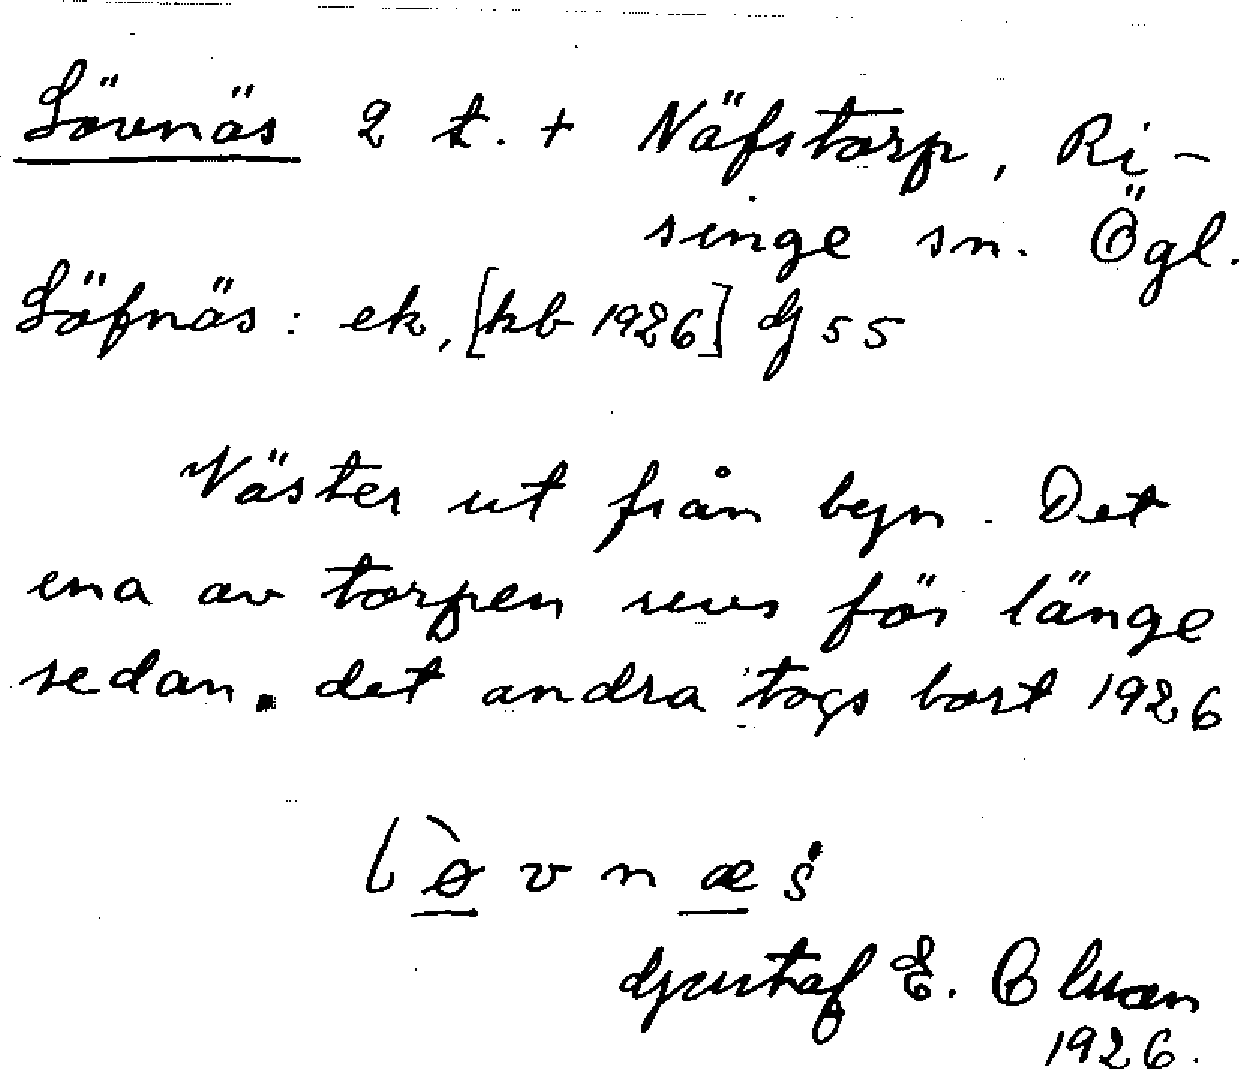 Lövnäs 2 t. + Näfstorp, Ri-
singe sn. Ögl.
Löfnäs: ek, [kb 1926] G 55
Väster ut från byn. Det
ena av torpen revs för länge
sedan. det andra togs bort 1926
l ø v n æ s
Gustaf E. 
1926.